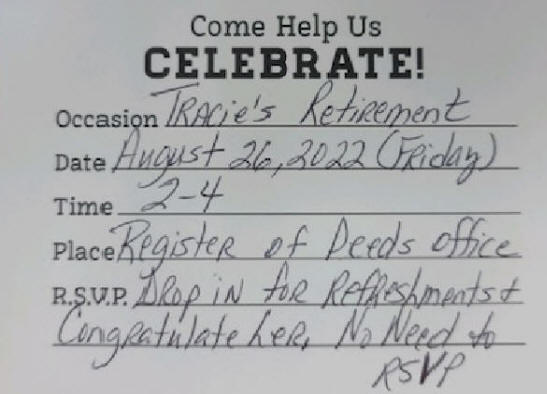 Come Help Us
CELEBRATE!
Occasion Tracie's Retirement
Date August 26, 2022 (Friday)
Time 2-4
Place Register of Deeds office
R.S.V.P. Drop in for Refreshments +
Congratulate her, No Need to
RSVP